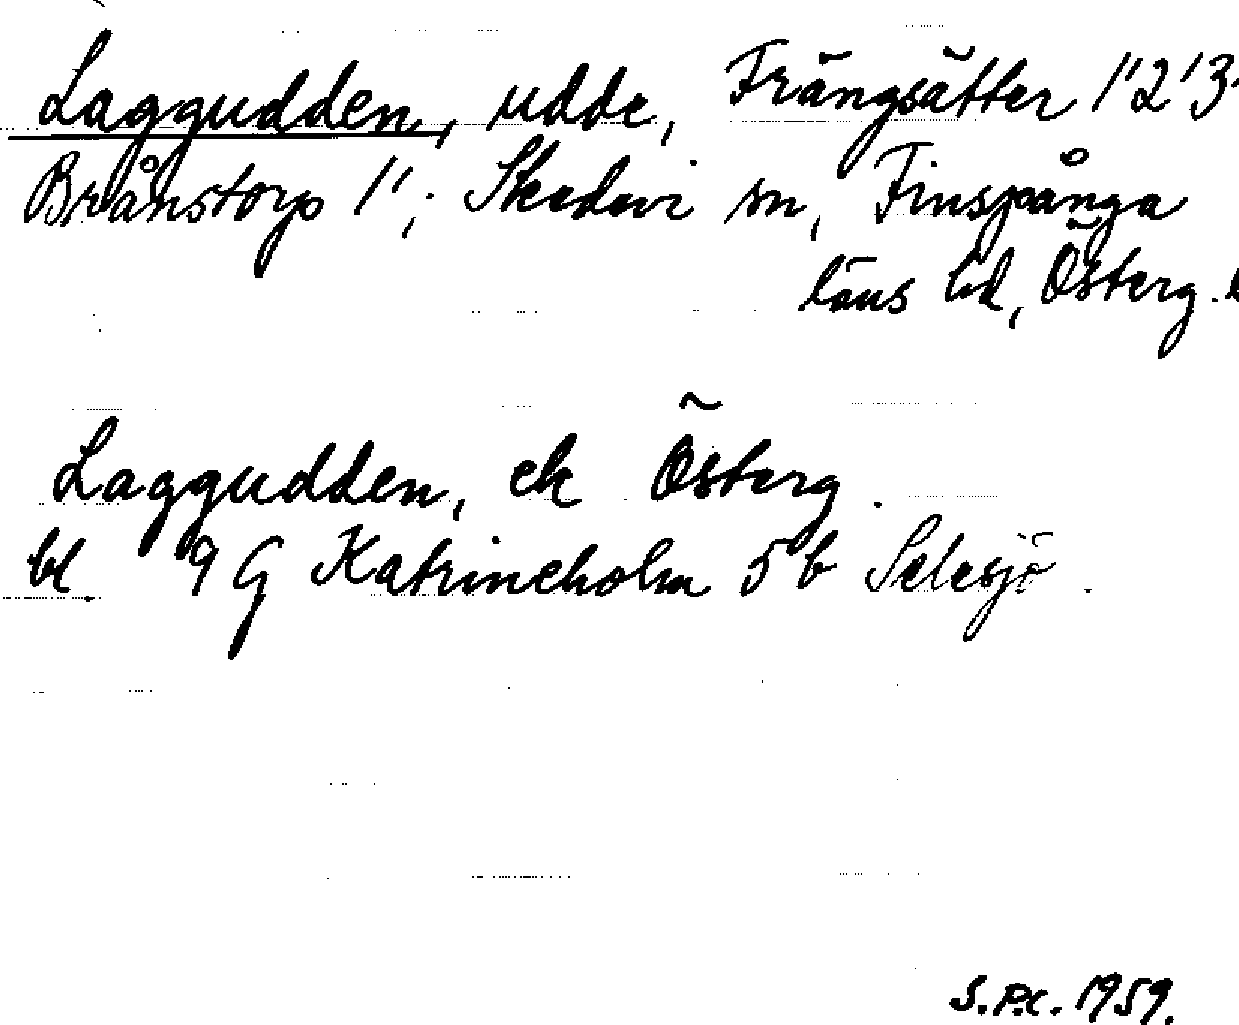 Laggudden, udde, Frängsätter 1'2'3'
Brånstorp 1'; Skedevi sn, Finspånga
läns hd, Österg. l
Laggudden, ek Österg.
bl 9 G Katrineholm 5 b Selesjö.
S.P.C. 1959.